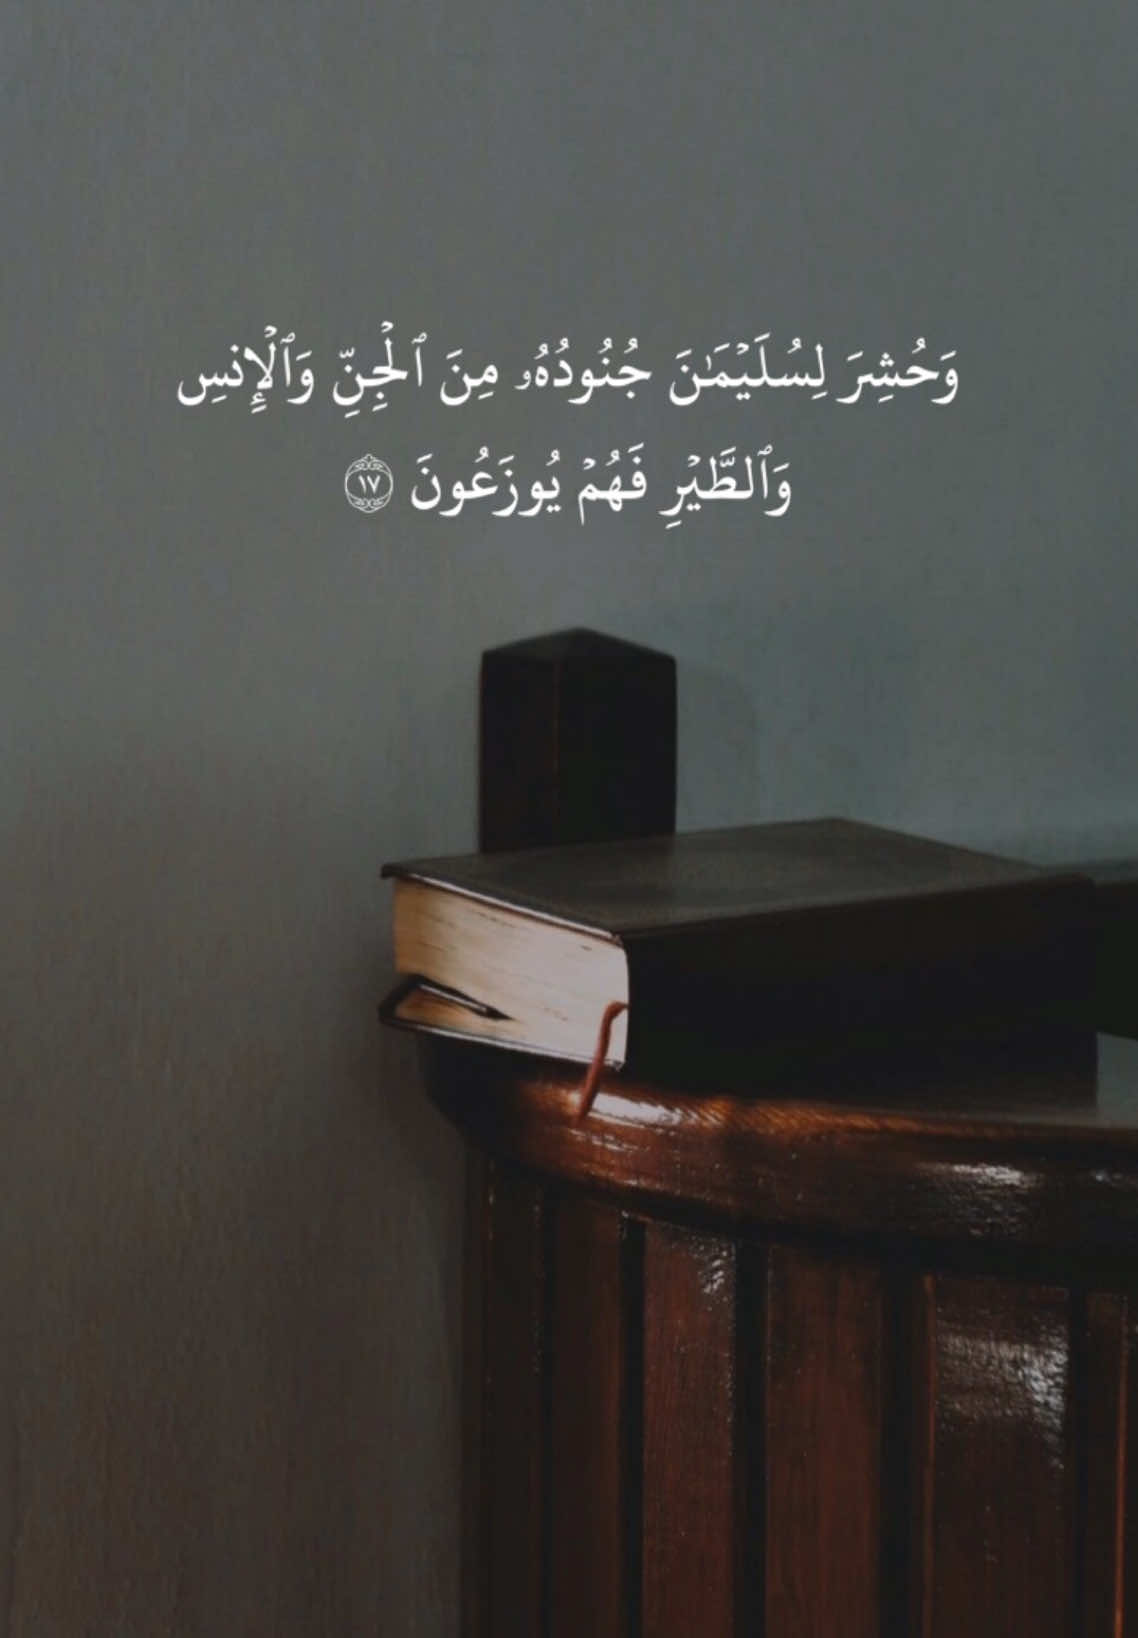 وَحُشِرَ لِسُلَيْمَٰنَ جُنُودُهُۥ مِنَ ٱلْجِنِّ وَٱلْإِنسِ
وَٱلطَّيْرِ فَهُمْ يُوزَعُونَ ١٧